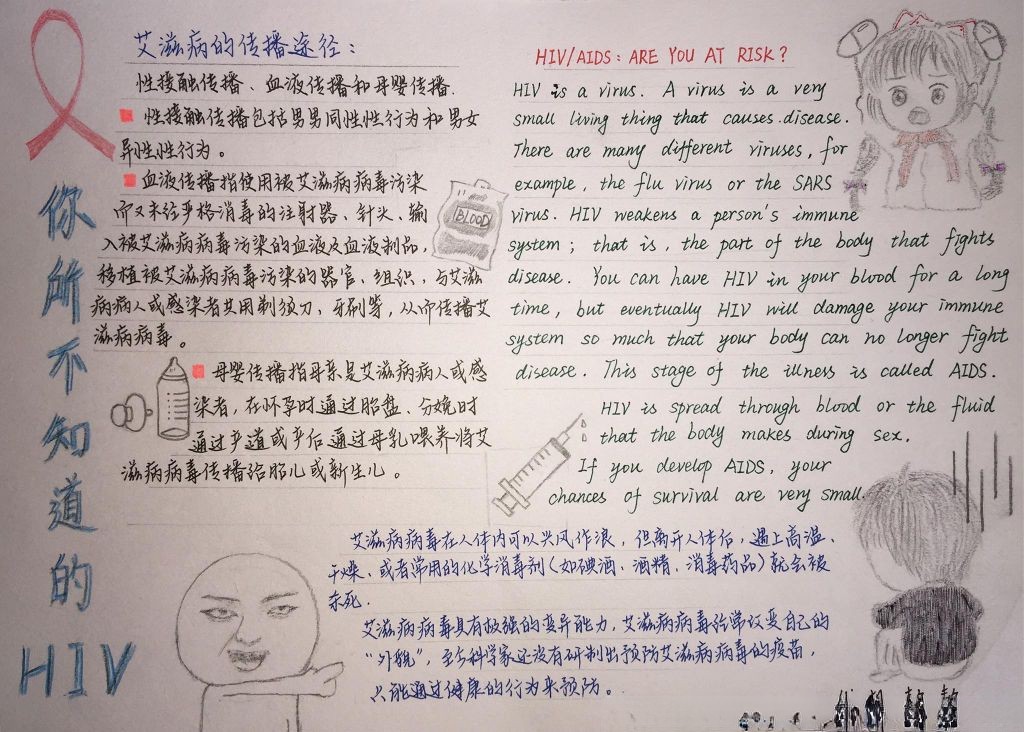 你所不知道的
HIV
艾滋病的传播途径：
性接触传播、血液传播和母婴传播.
性接触传播包括男男同性性行为和男女
异性性行为。
血液传播指使用被艾滋病病毒污染
而又未经严格消毒的注射器、针头、输
入被艾滋病病毒污染的血液及血液制品，
移植被艾滋病病毒污染的器官、组织，与艾滋
病病人或感染者共用剃须刀、牙刷等，从而传播艾
滋病病毒。
BLOOD
母婴传播指母亲是艾滋病病人或感
染者，在怀孕时通过胎盘、分娩时
通过产道或产后通过母乳喂养将艾
滋病病毒传播给胎儿或新生儿。
HIV/AIDS: ARE YOU AT RISK?
HIV is a virus. A virus is a very
small living thing that causes disease.
There are many different viruses, for
example, the flu virus or the SARS
virus. HIV weakens a person's immune
system; that is, the part of the body that fights
disease. You can have HIV in your blood for a long
time, but eventually HIV will damage your immune
system so much that your body can no longer fight
disease. This stage of the illness is called AIDS.
HIV is spread through blood or the fluid
that the body makes during sex.
If you develop AIDS, your
chances of survival are very small.
艾滋病病毒在人体内可以兴风作浪，但离开人体后，遇上高温、
干燥、或者常用的化学消毒剂（如碘酒、酒精、消毒药品）就会被
杀死.
艾滋病病毒具有极强的变异能力，艾滋病病毒经常改变自己的
“外貌”，至今科学家还没有研制出预防艾滋病病毒的疫苗，
只能通过健康的行为来预防。